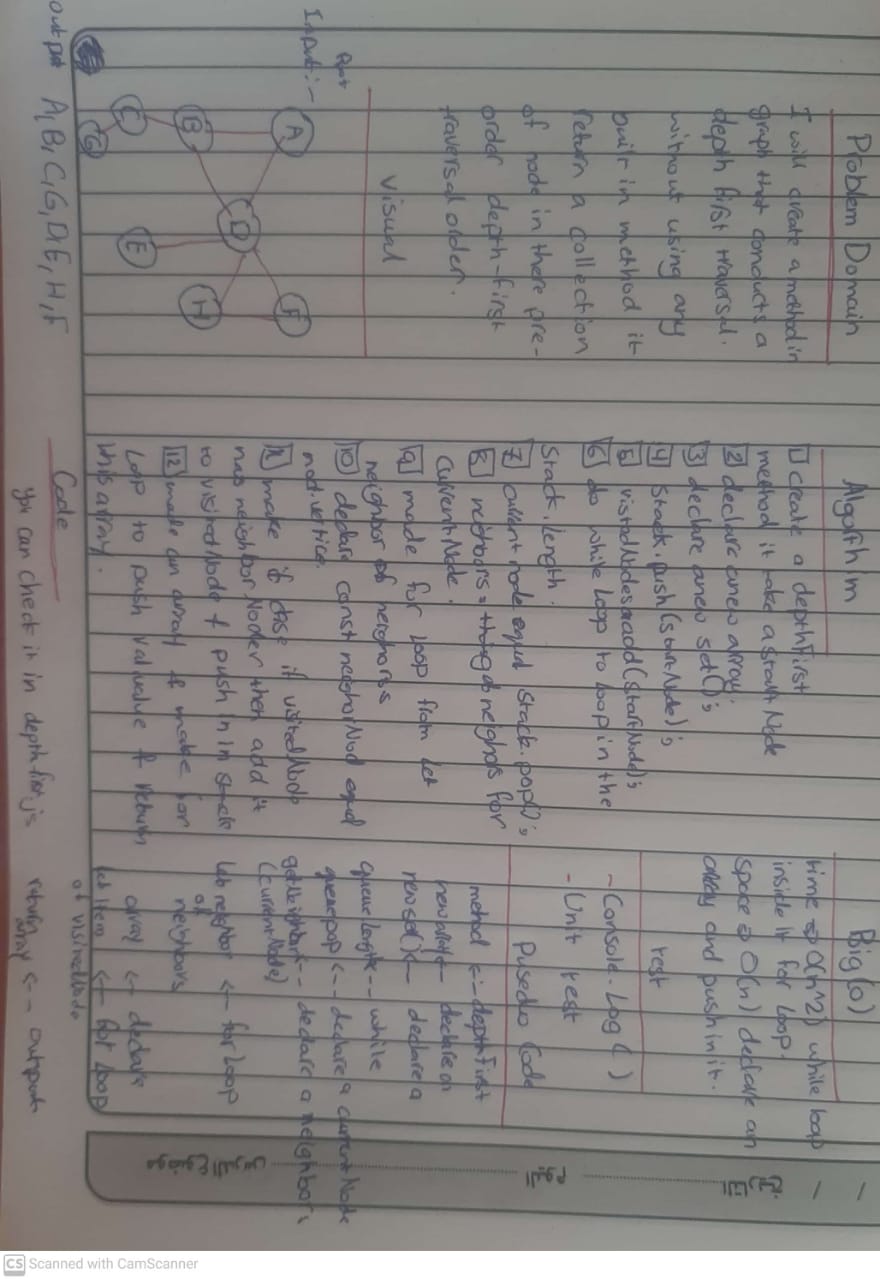 Problem Domain
I will create a method in
graph that conducts a
depth first traversal.
without using any
built in method it
return a collection
of node in there pre-
order depth-first
traversal order.
visual
Root
Input:-
A
B
C
G
D
E
H
F
output A, B, C, G, D, E, H, F
Algorithim
1 create a depthFirst
method it take a start Node
2 declare a new array;
3 declare a new set();
4 Stack.push(startNode);
5 visitedNodes add(startNode);
6 do while loop to loop in the
Stack.length.
7 current node equal Stack.pop();
8 neighbors = neighbors for
currentNode.
9 made for loop from let
neighbor of neighbors
10 declare const neighborNod equal
nod.vertice.
make if case if visitedNode
has neighborNode then add it
to visitedNode & push in in stack
12 made an array & make for
Loop to push value & return
this array.
Code
you can check it in depthfirst.js
Big(o)
time => O(n^2) while loop
inside it for loop.
space => O(n) declare an
array and push in it.
test
- Console.log( )
- Unit test
Pusedo Code
method <- depthFirst
new array <-- declare an
new set() <-- declare a
queue length <-- while
queue pop <-- declare a currentNode
getNeighbor <-- declare a neighbors
(currentNode)
let neighbor <- for loop
of
neighbors
array <- declare
let item <- for loop
of visitedNode
return <-- output
array
CS Scanned with CamScanner